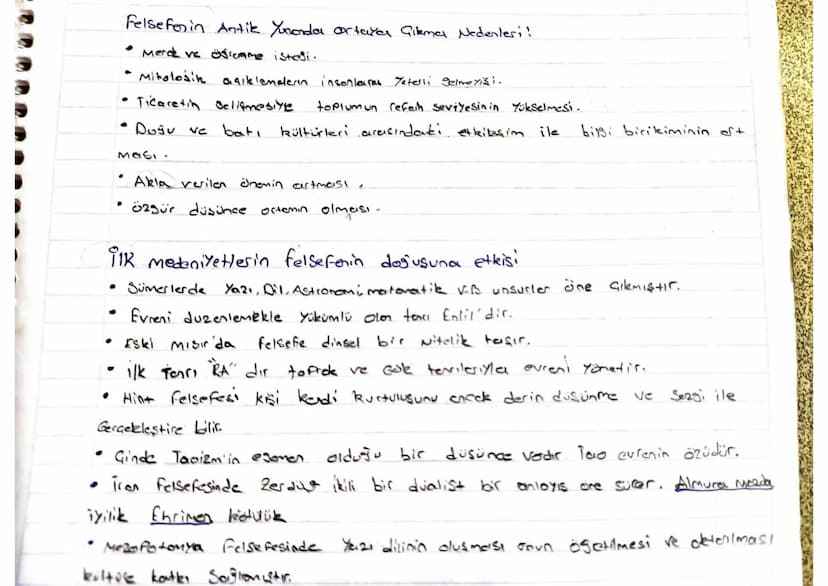 Felsefenin Antik Yunanda ortaya Çıkma Nedenleri!
• Merak ve öğrenme isteği.
• Mitolojik açıklamaların insanlara Yeterli gelmeyişi.
• Ticaretin Gelişmesiyle toplumun refah seviyesinin Yükselmesi.
• Doğu ve batı kültürleri arasındaki etkileşim ile bilgi birikiminin art
ması.
• Akla verilen önemin artması.
• özgür düşünce ortamın olması.
İlk medeniyetlerin felsefenin doğuşuna etkisi
• Sümerlerde Yazı, Dil, Astronomi matematik v.b unsurler öne Çıkmıştır.
• Evreni düzenlemekle Yükümlü olan tanrı Enlil'dir.
• Eski mısır'da felsefe dinsel bir Nitelik taşır.
• ilk Tanrı "RA" dır toprak ve Gök tanrılarıyla evreni Yönetir.
• Hint felsefesi kişi kendi kurtuluşunu ancak derin düşünme ve Sezgi ile
Gerçekleştire bilir.
• Çinde Taoizm'in egemen olduğu bir düşünce vardır Tao evrenin özüdür.
• İran felsefesinde Zerdüşt ikili bir dualist bir anlayış öne sürer. Ahura Mazda
iyilik Ehrimen kötülük
• Mezopotamya Felsefesinde Yazı dilinin oluşması onun öğretilmesi ve aktarılması
kültüre katkı Sağlamıştır.